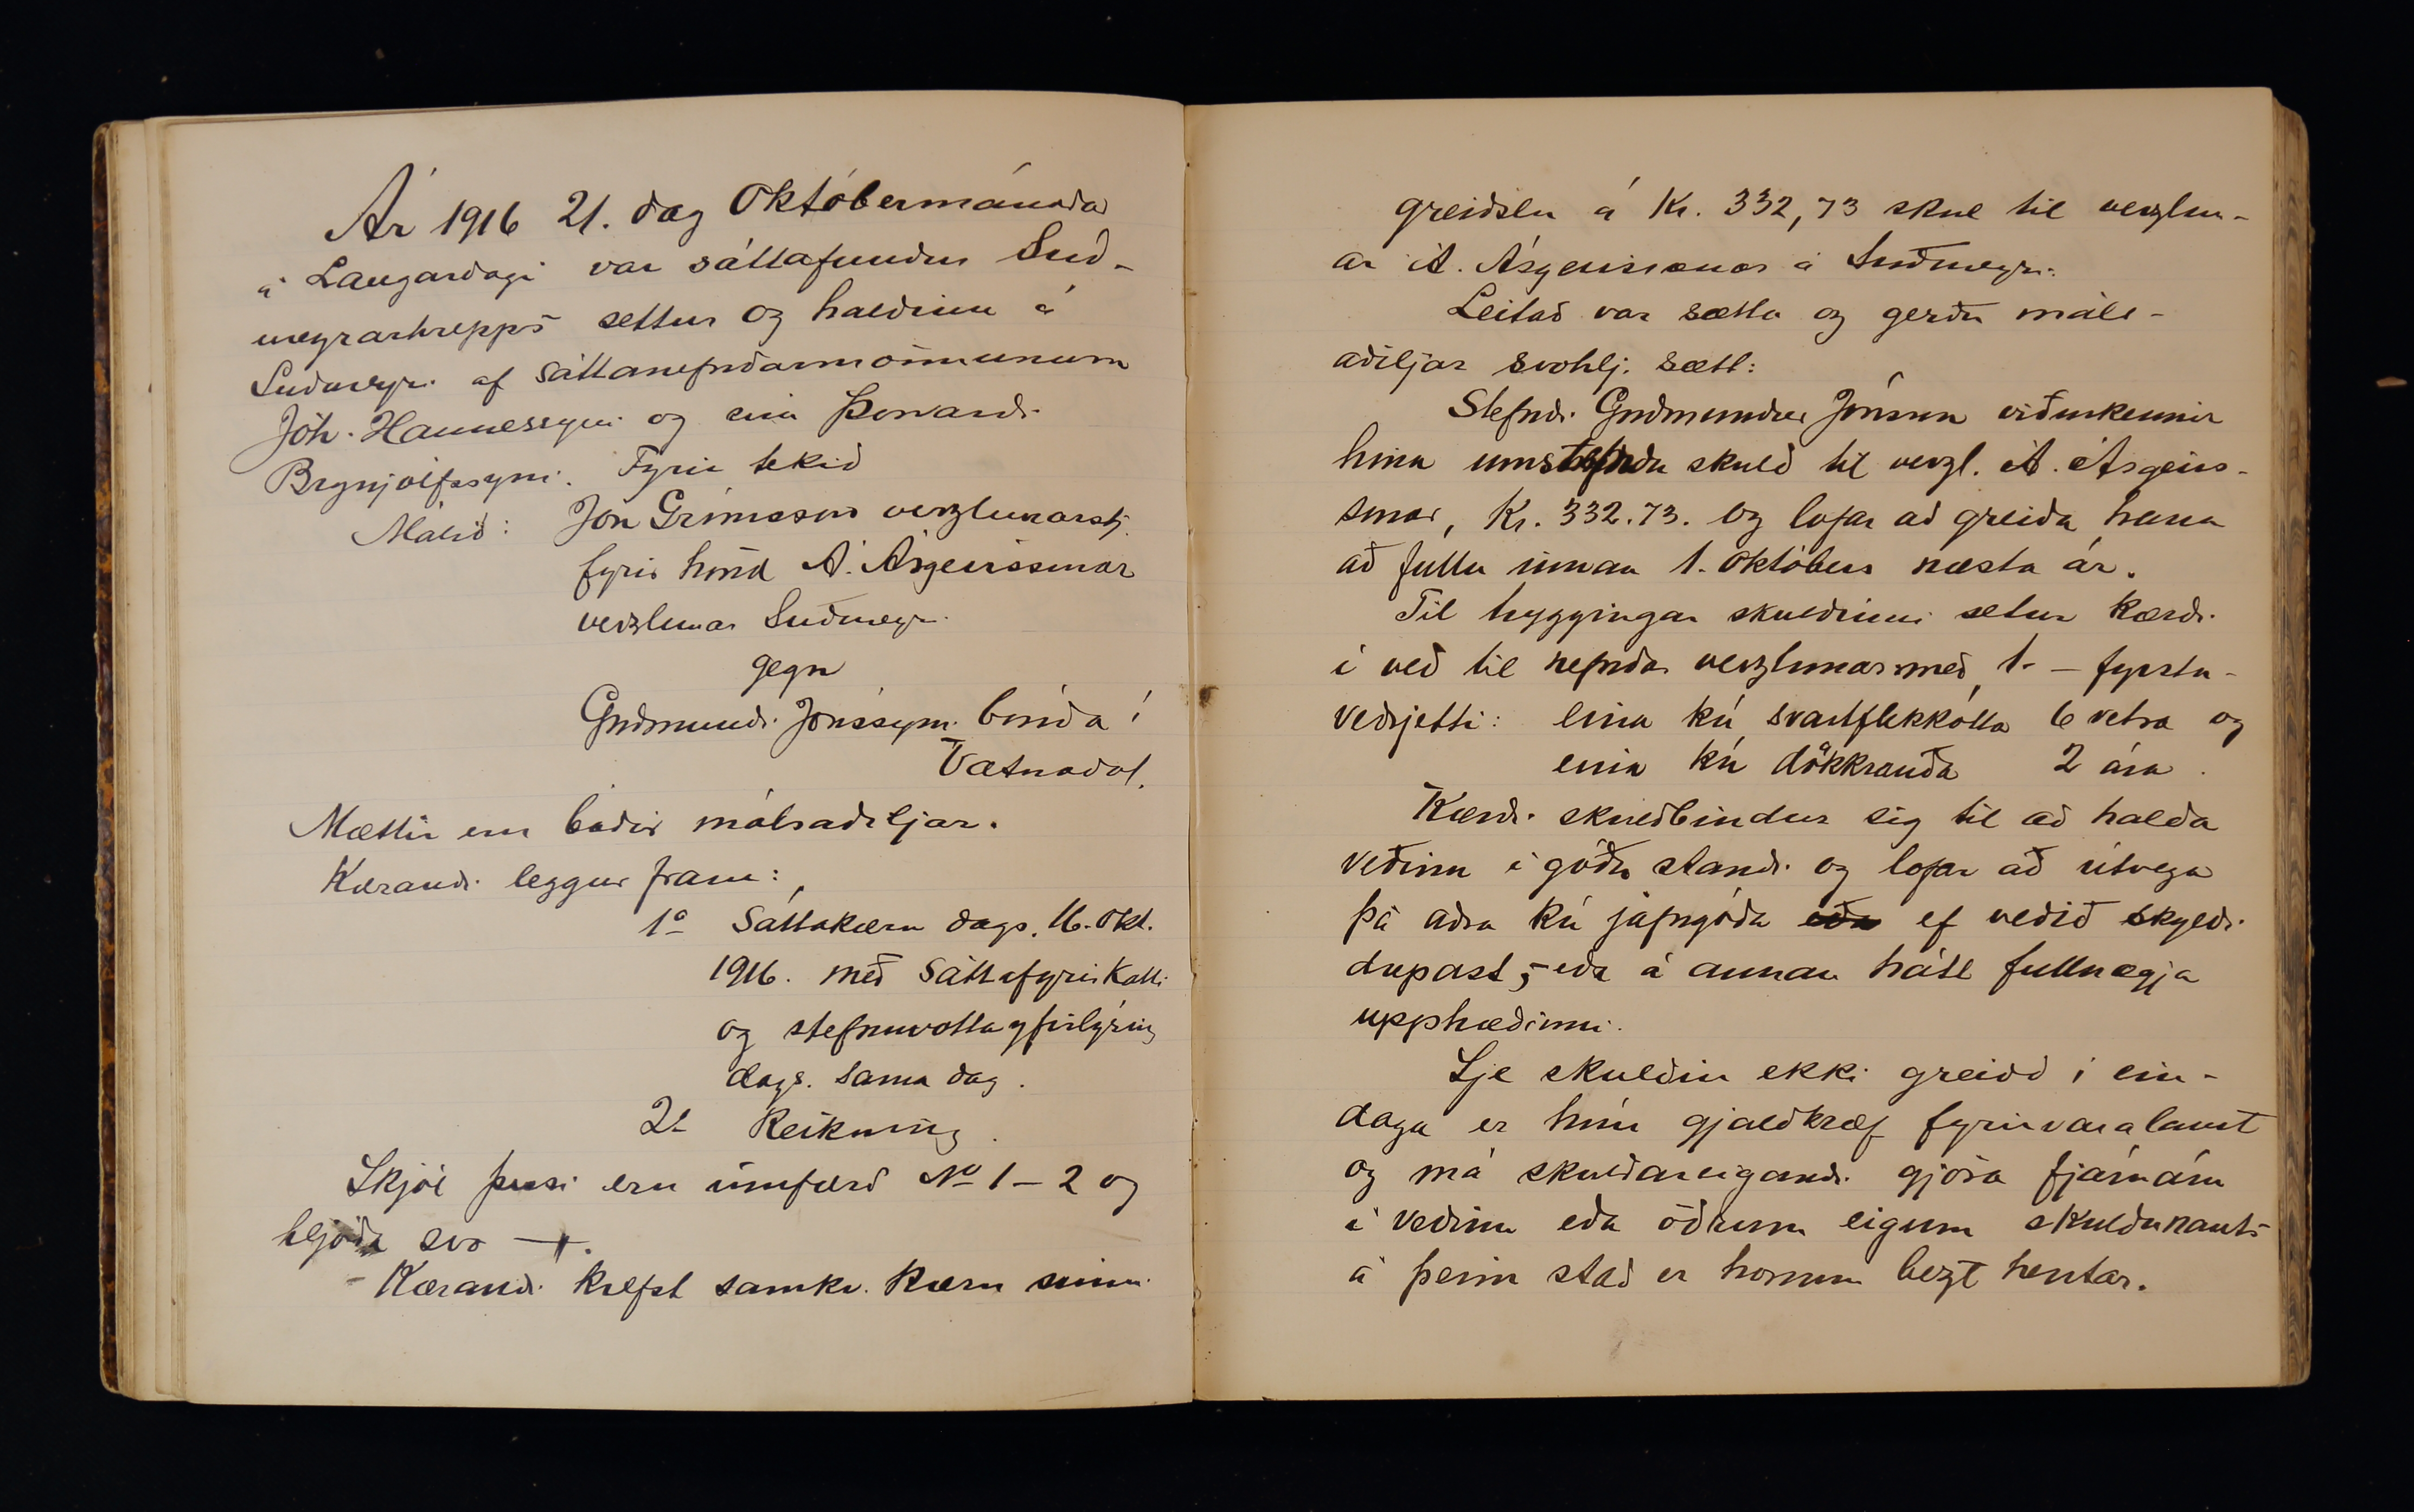 Ár 1916 21. dag Októbermánaðar
á Laugardagi var sáttafundur Suð-
ureyrarhrepps settur og haldinn á
Suðureyri af sáttanefndarmönnunum
Jóh. Hannessyni og Þorvarði
Brynjólfssyni. Fyrir tekið
Málið: Jón Grímsson verzlunarstj.
fyrir hönd Á. Ásgeirssonar
verzlunar Suðureyri
gegn
Guðmundi Jónssyni bónda í
Vatnadal.
Mættir eru báðir málsaðiljar.
Kærandi leggur fram:
1º Sáttakæru dags. 16. okt.
1916. með sáttafyrirkalli
og stefnuvottayfirlýsing
dags. sama dag.
2º Reikning.
Skjöl þessi eru innfærð No 1 – 2 og
hljóða svo —.
- Kærandi krefst samkv. kæru sinni
greiðslu á Kr. 332,73 skuld til verzlun-
ar Á. Ásgeirssonar á Suðureyri.
Leitað var sætta og gerðu máls-
aðiljar svohlj. sætt:
Stefndi Guðmundur Jónsson viðurkennir
hina umstefndu skuld til verzl. Á. Ásgeirs-
sonar, Kr. 332.73. og lofar að greiða hana
að fullu innan 1. Októbers næsta ár.
Til tryggingar skuldinni setur kærði
í veð til nefndar verzlunar með 1. – fyrsta -
veðrjetti: eina kú svartflekkótta 6 vetra og
eina kú dökkrauða 2 ára.
Kærði skuldbindur sig til að halda
veðinu í góðu standi og lofar að útvega
þá aðra kú jafngóða eða ef veðið skyldi
drepast, eða á annan hátt fullnægja
upphæðinni.
Sje skuldin ekki greidd í ein-
daga er hún gjaldkræf fyrirvaralaust
og má skuldareigandi gjöra fjárnám
í veðinu eða öðrum eigum skuldunauts
á þeim stað er honum bezt hentar.